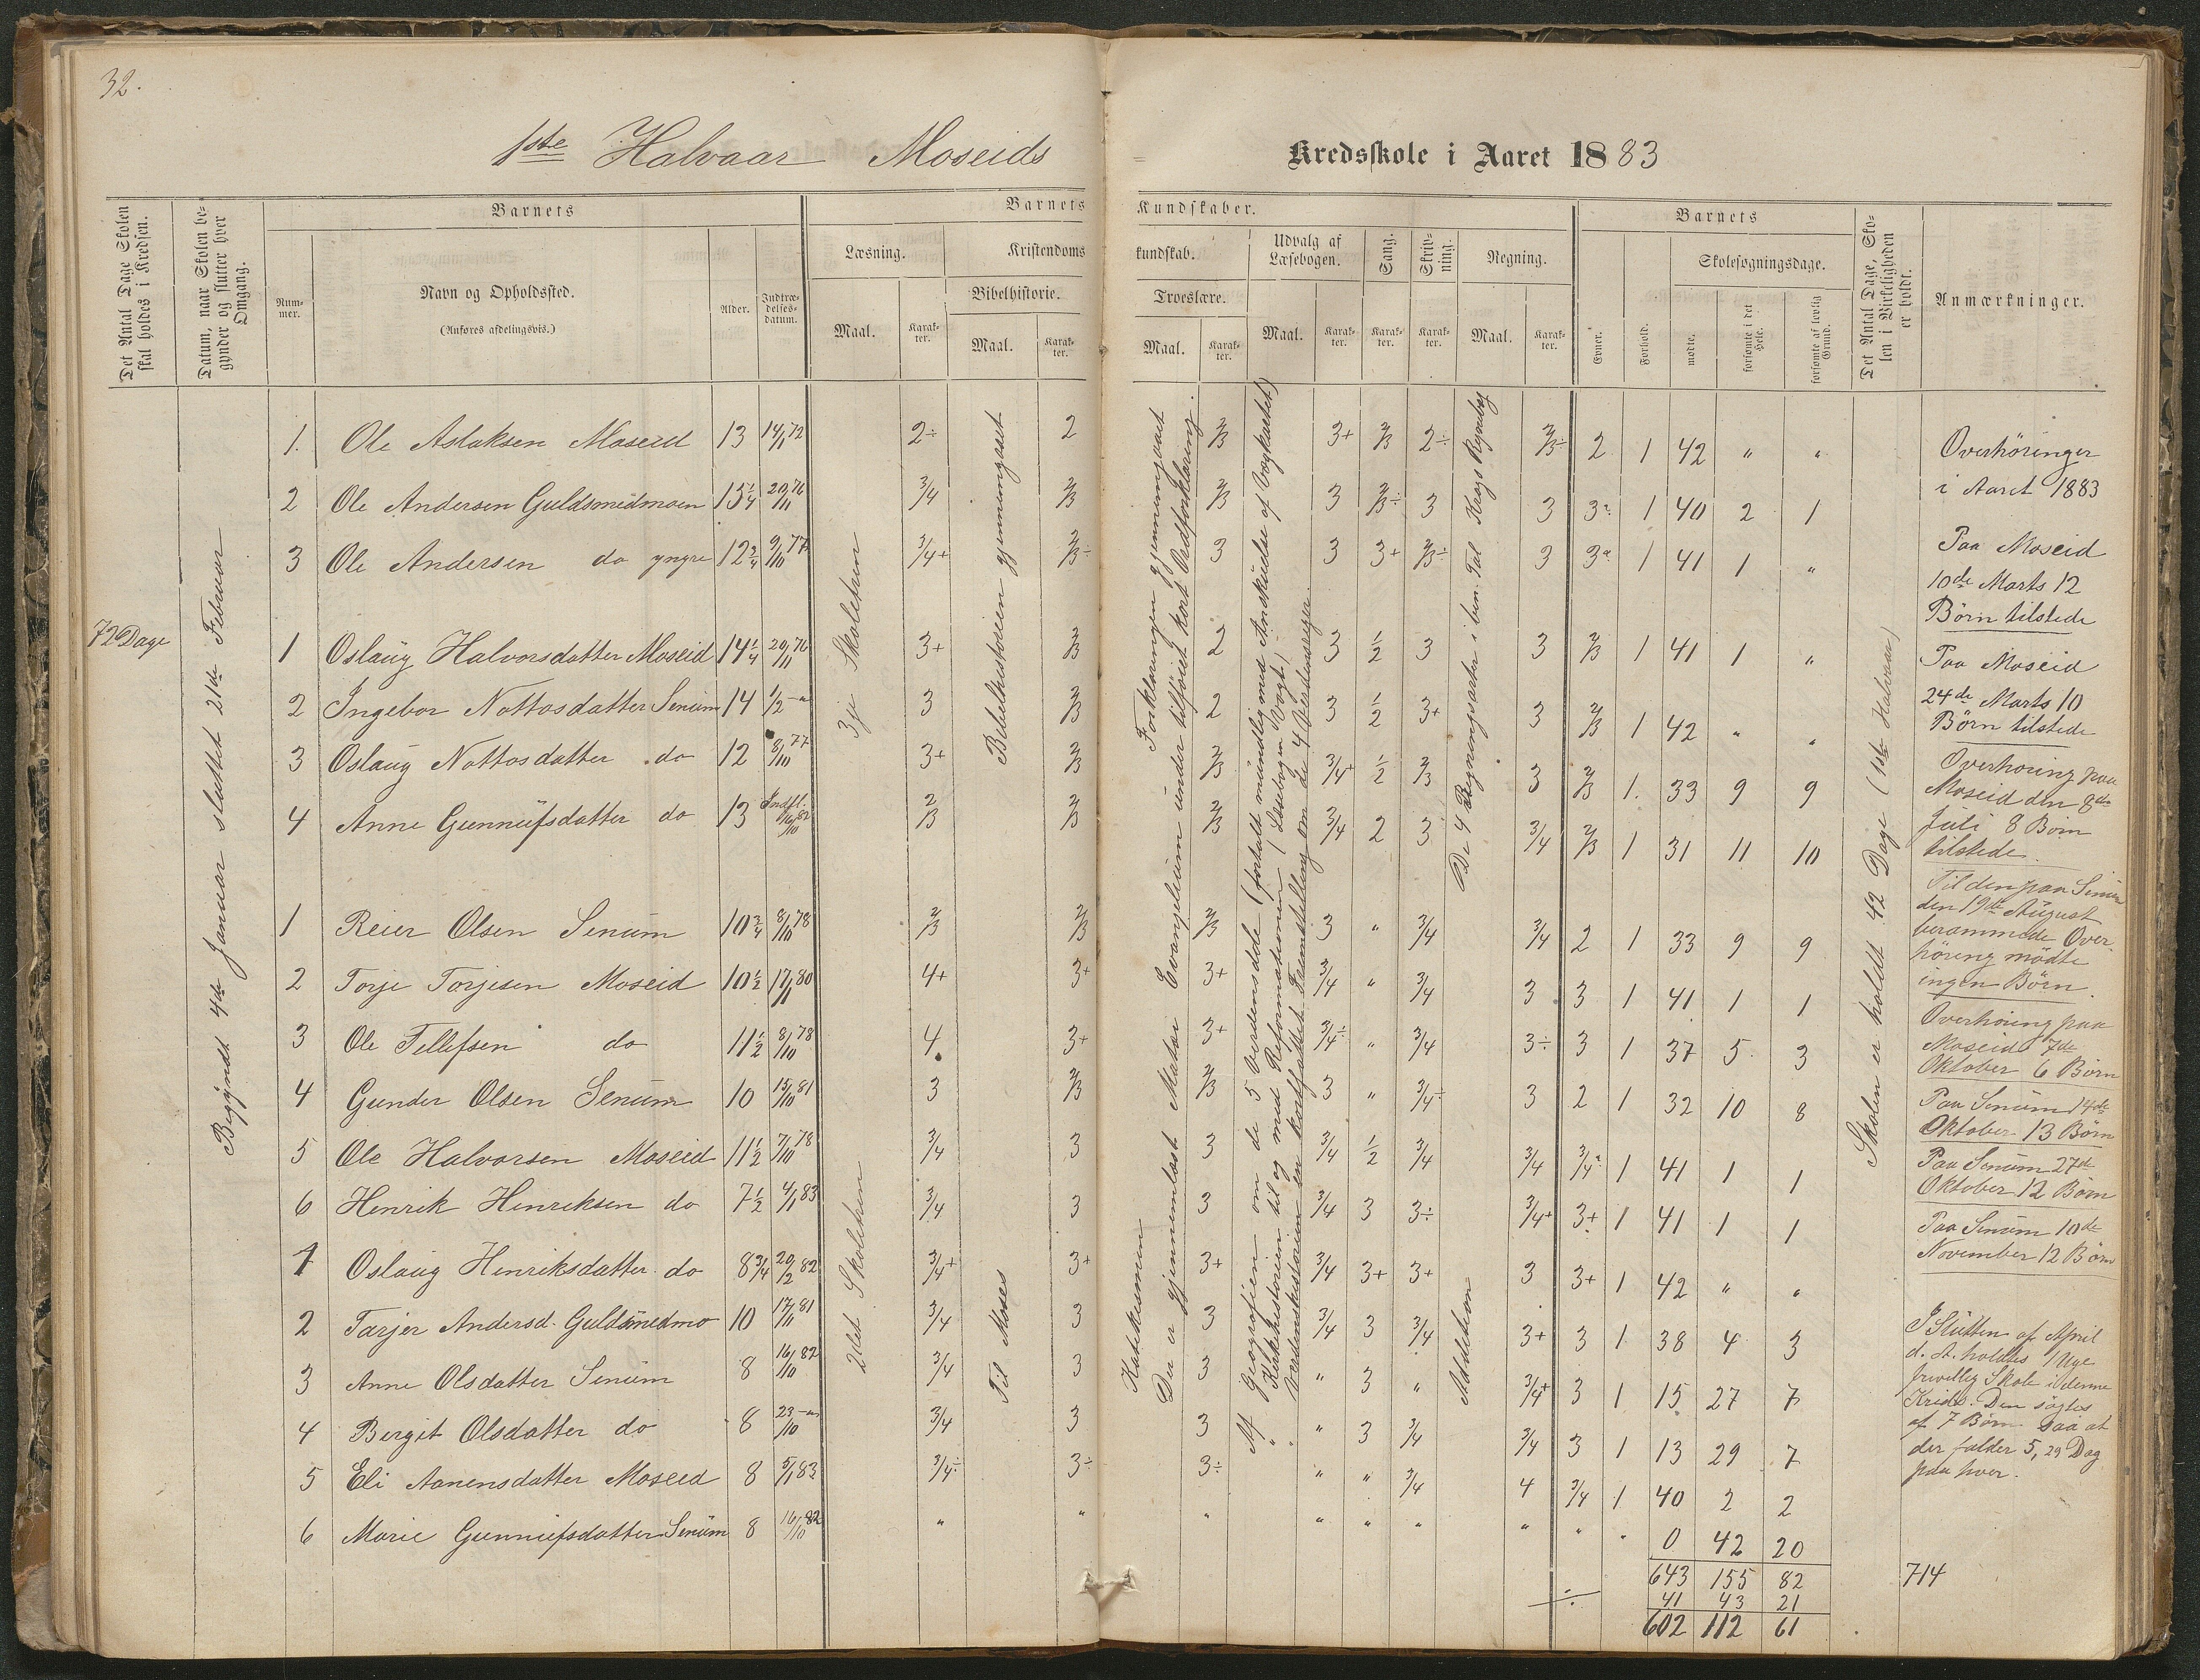 32.
1ste Halvaar Moseids
Kredsskole i Aaret 1883
Det Antal Dage Skolen skal holdes i Kredsen.
Datum, naar Skolen begynder og slutter hver Omgang.
Barnets
Nummer.
Navn og Opholdssted.
(Anføres afdelingsvis.)
Alder.
Indtrædelsesdatum.
Barnets Kundskaber.
Læsning.
Maal.
Karakter.
Kristendomskundskab.
Bibelhistorie.
Maal.
Karakter.
Troeslære.
Maal.
Karakter.
Udvalg af Læsebogen.
Maal.
Karakter.
Sang.
Karakter.
Skrivning.
Karakter.
Regning.
Maal.
Karakter.
Barnets
Evner.
Forhold.
Skolesøgningsdage.
mødte.
forsømte i det Hele.
forsømte af lovlig Grund.
Det Antal Dage, Skolen i Virkeligheden er holdt.
Anmærkninger.
72 Dage
Begyndt 4de Januar sluttet 21de Februar
3je Skoletrin
2det Skoletrin
Bibelhistorien gjennemgaaet
Til Moses
Forklaringen gjennemgaaet
Katekismen
Der er gjennemlæst Matæi Evangelium under tilføiet kort Ordforklaring.
Af Geografien om de 5 Verdensdele (fortalt mundlig med Anskuelse af Vægkartet)
" Kirkehistorien til og med Reformationen (Læsebogen Vogt)
" Verdenshistorien en kortfattet Fremstilling om de 4 Verdensriger.
De 4 Regningsarter i ben. Tal Krogs Regnebog
Addition
Skolen er holdt 42 Dage (1ste Halvaar)
1. Ole Aslaksen Moseid 13 14/1 72 2÷ 2 2/3 3+ 2/3 2÷ 2/3÷ 2 1 42 " "
2 Ole Andersen Guldsmedmoen 15 1/4 20/11 76 3/4 2/3 2/3 3 2/3÷ 3 3 3 1 40 2 1
3 Ole Andersen do yngre 12 3/4 9/10 77 3/4+ 2/3÷ 3 3 3+ 2/3÷ 3 3 1 41 1 "
1 Oslaug Halvorsdatter Moseid 14 1/4 20/11 76 3+ 2/3 2 3 1/2 3 3 2/3 1 41 1 "
2 Ingebor Nottosdatter Senum 14 1/2 3 2/3 2 3 1/2 3+ 3 2/3 1 42 " "
3 Oslaug Nottosdatter do 12 8/10 77 3+ 2/3 2/3 3/4+ 1/2 2/3 3 2/3 1. 33 9 9
4 Anne Gunnufsdatter do 13 Indfl. 16/10 82 2/3 2/3 2/3 3/4 2 3 3/4 2/3 1 31 11 10
1 Reier Olsen Senum 10 3/4 8/10 78 2/3 2/3 2/3 3 " 3/4 3/4 2 1 33 9 9
2 Torje Torjesen Moseid 10 1/2 17/1 80 4+ 3+ 3+ 3/4 " 3/4 3 3 1 41 1 1
3 Ole Tellefsen do 11 1/2 8/10 78 4 3+ 3+ 3/4÷ " 3/4 3÷ 3 1 37 5 3
4 Gunder Olsen Senum 10 15/10 81 3 2/3 2/3 3 " 3/4÷ 3 2 1 32 10 8
5 Ole Halvorsen Moseid 11 1/2 7/10 78 3/4 3 3 3/4 1/2 3/4 3/4 3/4 1 41 1 1
6 Henrik Henriksen do 7 1/2 4/1 83 3/4 3 3 3/4 3 3÷ 3/4+ 3+ 1 41 1 1
1 Oslaug Henriksdatter do 8 3/4 20/2 82 3/4+ 3+ 3+ 3/4 3+ 3+ 3 3+ 1 42 " "
2 Tarjer Andersd. Guldsmedmo 10 17/11 81 3/4 3 3 3/4 3 3/4 3+ 3 1 38 4 3
3 Anne Olsdatter Senum 8 16/10 82 3/4 3 3 " 3 " 3/4+ 3 1 15 27 7
4 Bergit Olsdatter do 8 23/10 3/4 3 3 " 3 3/4 3/4 3 1 13 29 7
5 Eli Aanensdatter Moseid 8 5/1 83 3/4÷ 3÷ 3÷ " " 3/4 4 3/4 1 40 2 2
6 Marie Gunnufsdatter Senum 8 16/10 82 " " " " " " " " " 0 42 20
643 155 82
÷ 41 43 21
602 112 61
714
Overhøringer
i Aaret 1883
Paa Moseid
10de Marts 12
Børn tilstede
Paa Moseid
24de Marts 10
Børn tilstede
Overhøring paa
Moseid den 8de
Juli 8 Børn
tilstede.
Til den paa Senum
den 19de August
berammede Over-
høring mødte
ingen Børn.
Overhøring paa
Moseid 7de
Oktober 6 Børn
Paa Senum 14de
Oktober 13 Børn
Paa Senum 27de
Oktober 12 Børn
Paa Senum 10de
November 12 Børn
I Slutten af April
d. A. holdtes 1 Uge
frivillig Skole i denne
Kreds. Den søgtes
af 7 Børn saa at
der falder 5,29 Dag
paa hver.